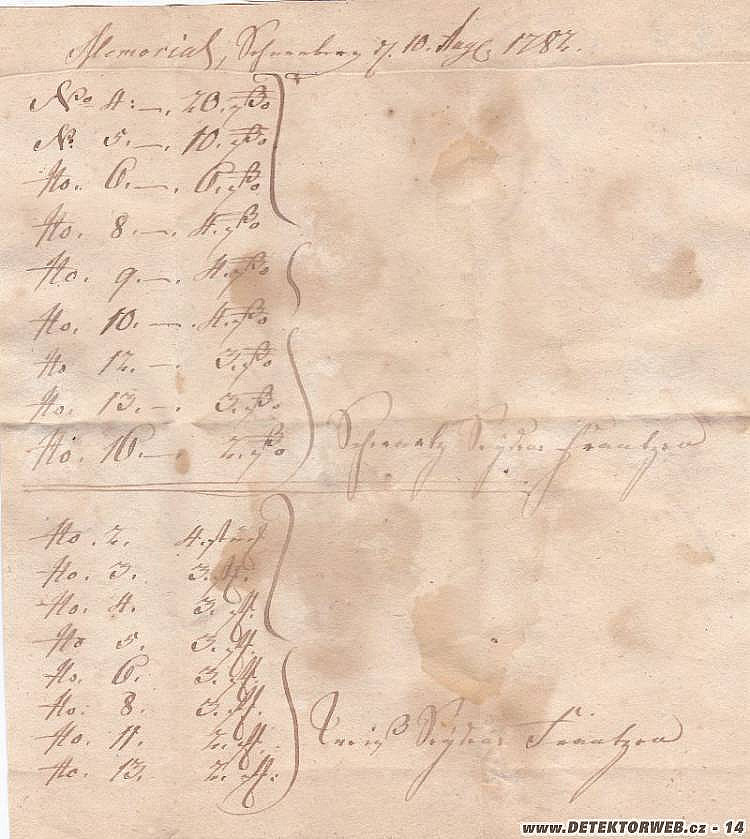 Memorial, Schneeberg d. 10. Aug. 1782.
No 4. —. 20.
No. 5. —. 10.
No. 6. —. 6.
No. 8. —. 4.
No. 9. —. 4.
No. 10. —. 4.
No 12. —. 3.
No. 13. —. 3.
No. 16. —. 2.
Schwartz Seyden Frantzen
No. 2. 4. stück
No. 3. 3. st.
No. 4. 3. st.
No 5. 3. st.
No. 6. 3. st.
No. 8. 3. st.
No. 11. 2. st.
No. 13. 2. st.
Weiß Seyden Frantzen
www.DETEKTORWEB.cz - 14